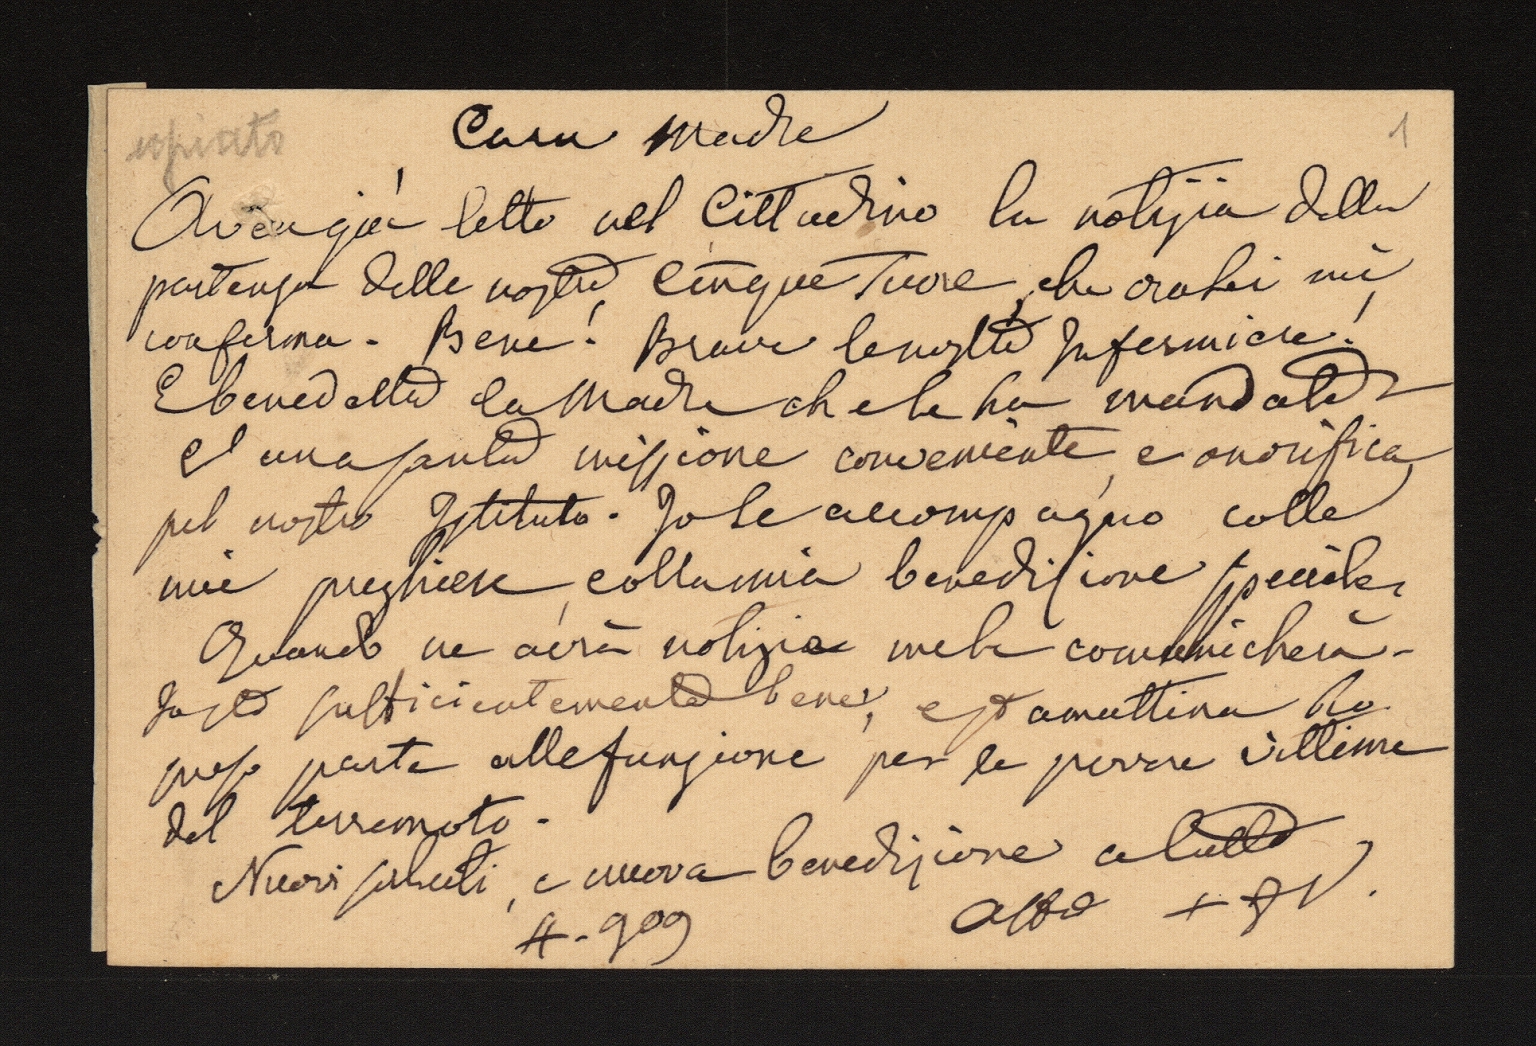 copiato
1
Cara Madre
Avea già letto nel Cittadino la notizia della
partenza delle nostre cinque Suore, che ora Lei mi
conferma. Bene! Brave le nostre Infermiere!
E benedetta la Madre che le ha mandate
E' una santa missione conveniente, e onorifica
pel nostro Istituto. Io le accompagno colle
mie preghiere, e colla mia benedizione speciale.
Quando ne avrà notizia me le comunicherà.
Io sto sufficientemente bene, e stamattina ho
preso parte alle funzione per le povere vittime
del terremoto.
Nuovi saluti, e nuova benedizione a tutte
909
Affo +